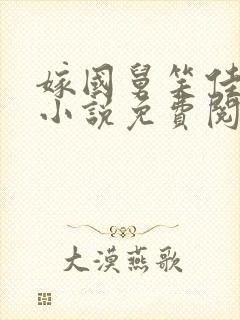 嫁國舅笑佳
小說免費閱
大漠燕歌